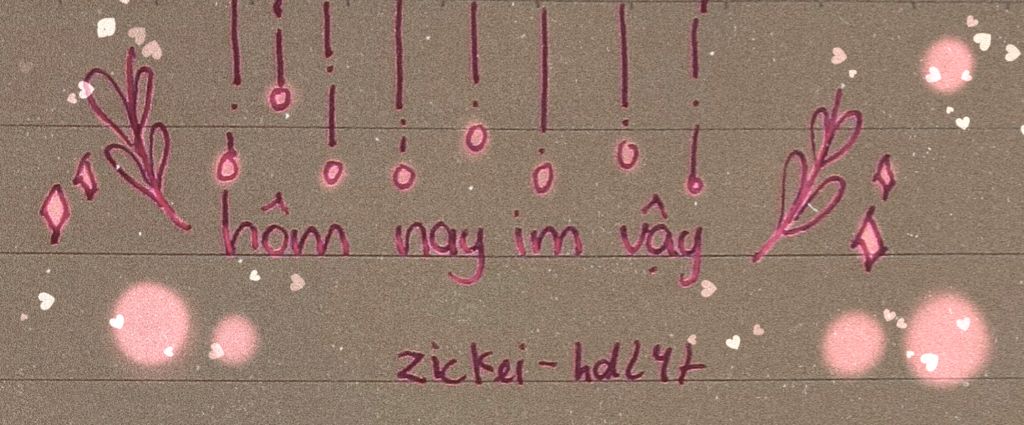 hôm nay im vậy
zickei - hdl4t